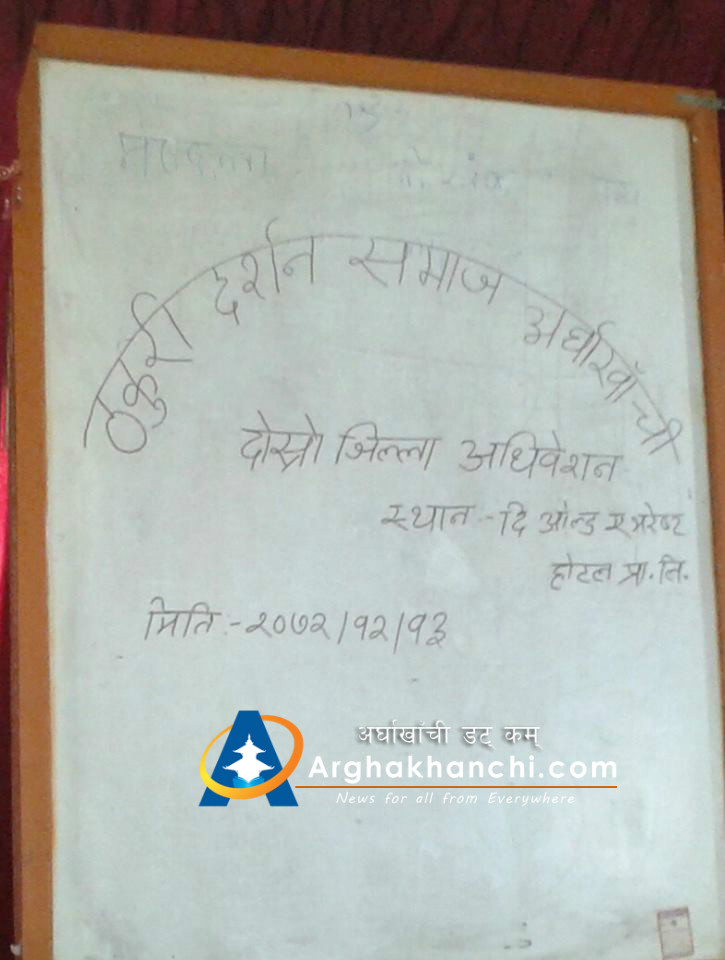 ठकुरी दर्शन समाज अर्घाखाँची
दोस्रो जिल्ला अधिवेशन
स्थान :- दि ओल्ड एभरेष्ट
होटल प्रा. लि.
मिति :- २०७२/१२/१३
अर्घाखाँची डट् कम्
Arghakhanchi.com
News for all from Everywhere